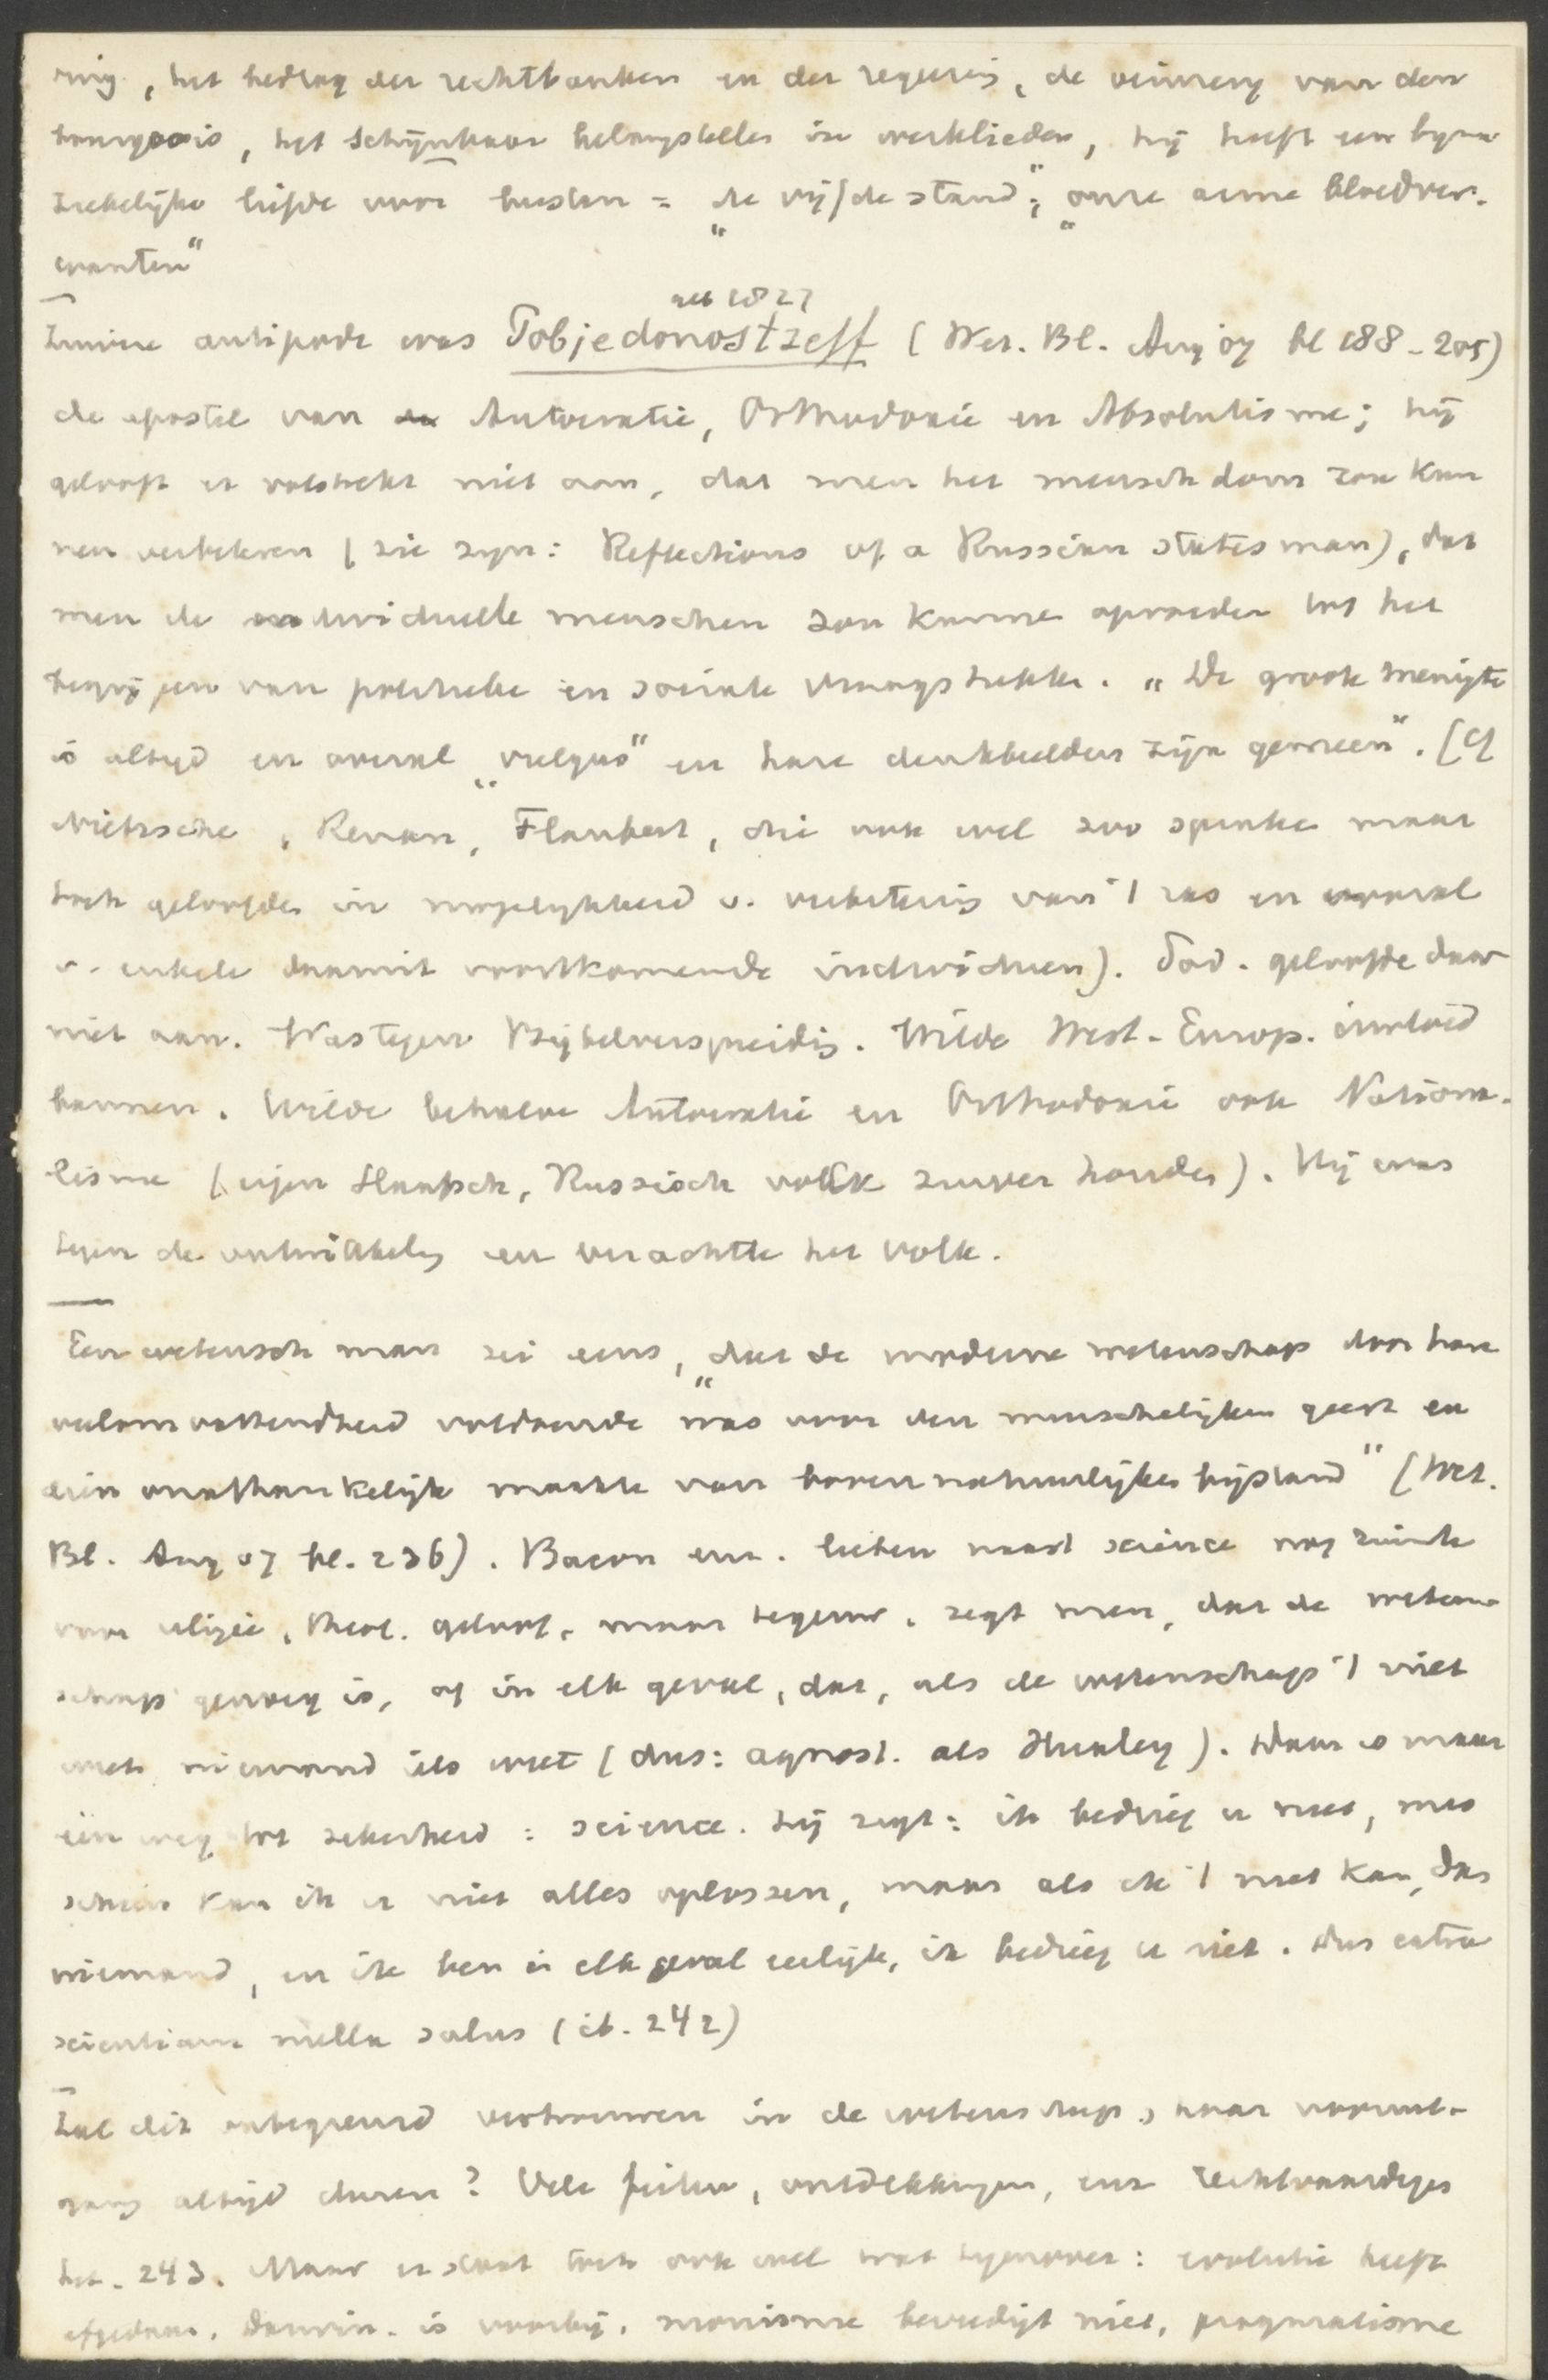 ring, het bedrog der rechtbanken en der regeering, de
bourgeois, het schijnbaar belangstellen in werklieden, hij heeft een byna
ziekelijke liefde voor beesten = „de vijfde stand”, „onze arme bloedver-
wanten”
geb 1827
Zuivere antipode was Pobjedonostzeff (Wet. Bl. Aug 07 bl 188-205)
de apostel van Autocratie, Orthodoxie en Absolutisme; hij
gelooft er volstrekt niet aan, dat men het menschdom zou kun
nen verbeteren (zie zyn: Reflections of a Russian statesman), dat
men de individuelle menschen zou kunnen opvoeden tot het
begrijpen van politieke en sociale vraagstukken. „De groote menigte
is altyd en overal „vulgus” en hare denkbeelden zijn gemeen”. (Cf
Nietzsche, Renan, Flaubert, die ook wel zoo spraken maar
toch geloofden in mogelykheid v. verbetering van 't ras en vooral
v. enkele daaruit voortkomende individuen). Pob. geloofde daar
niet aan. Was tegen Bijbelverspreidig. Wilde West-Europ. invloed
bannen. Wilde behalve Autocratie en Orthodoxie ook Nationa-
lisme (eigen Slaafsch, Russisch volk zuiver houden). Hij was
tegen de ontwikkeling en verachtte het volk.
Een wetensch man zei eens, „dat de moderne wetenschap door hare
veelomvattendheid voldoende was voor den menschelijken geest en
dezen onafhankelijk maakte van bovennatuurlijken bijstand” (Wet.
Bl. Aug 07 bl. 236). Bacon enz. lieten naast science nog ruimte
voor religie, theol. geloof, maar tegenw. zegt men, dat de weten
schap genoeg is, of in elk geval, dat, als de wetenschap 't niet
weet niemand iets weet (dus: agnost. als Huxley). Daar is maar
één weg tot zekerheid: science. Hij zegt: ik bedrieg u niet, mis
schien kan ik u niet alles oplossen, maar als ik 't niet kan, dan
niemand, en ik ben in elk geval eerlijk, ik bedrieg u niet. Dus extra
scientiam nulla salus (ib. 242)
Zal dit onbegrensd vertrouwen in de wetenschap, haar vooruit-
gang altijd duren? Vele feiten, ontdekkingen, enz rechtvaardigen
het. 243. Maar er staat toch ook wel wat tegenover: evolutie heeft
afgedaan, Darwin. is voorbij, monisme bevredigt niet, pragmatisme